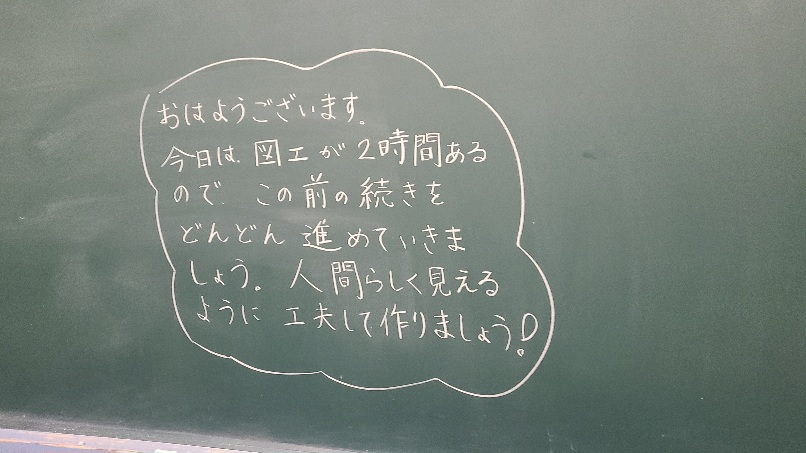 おはようございます。
今日は、図工が2時間ある
ので、この前の続きを
どんどん進めていきま
しょう。人間らしく見える
ように工夫して作りましょう!